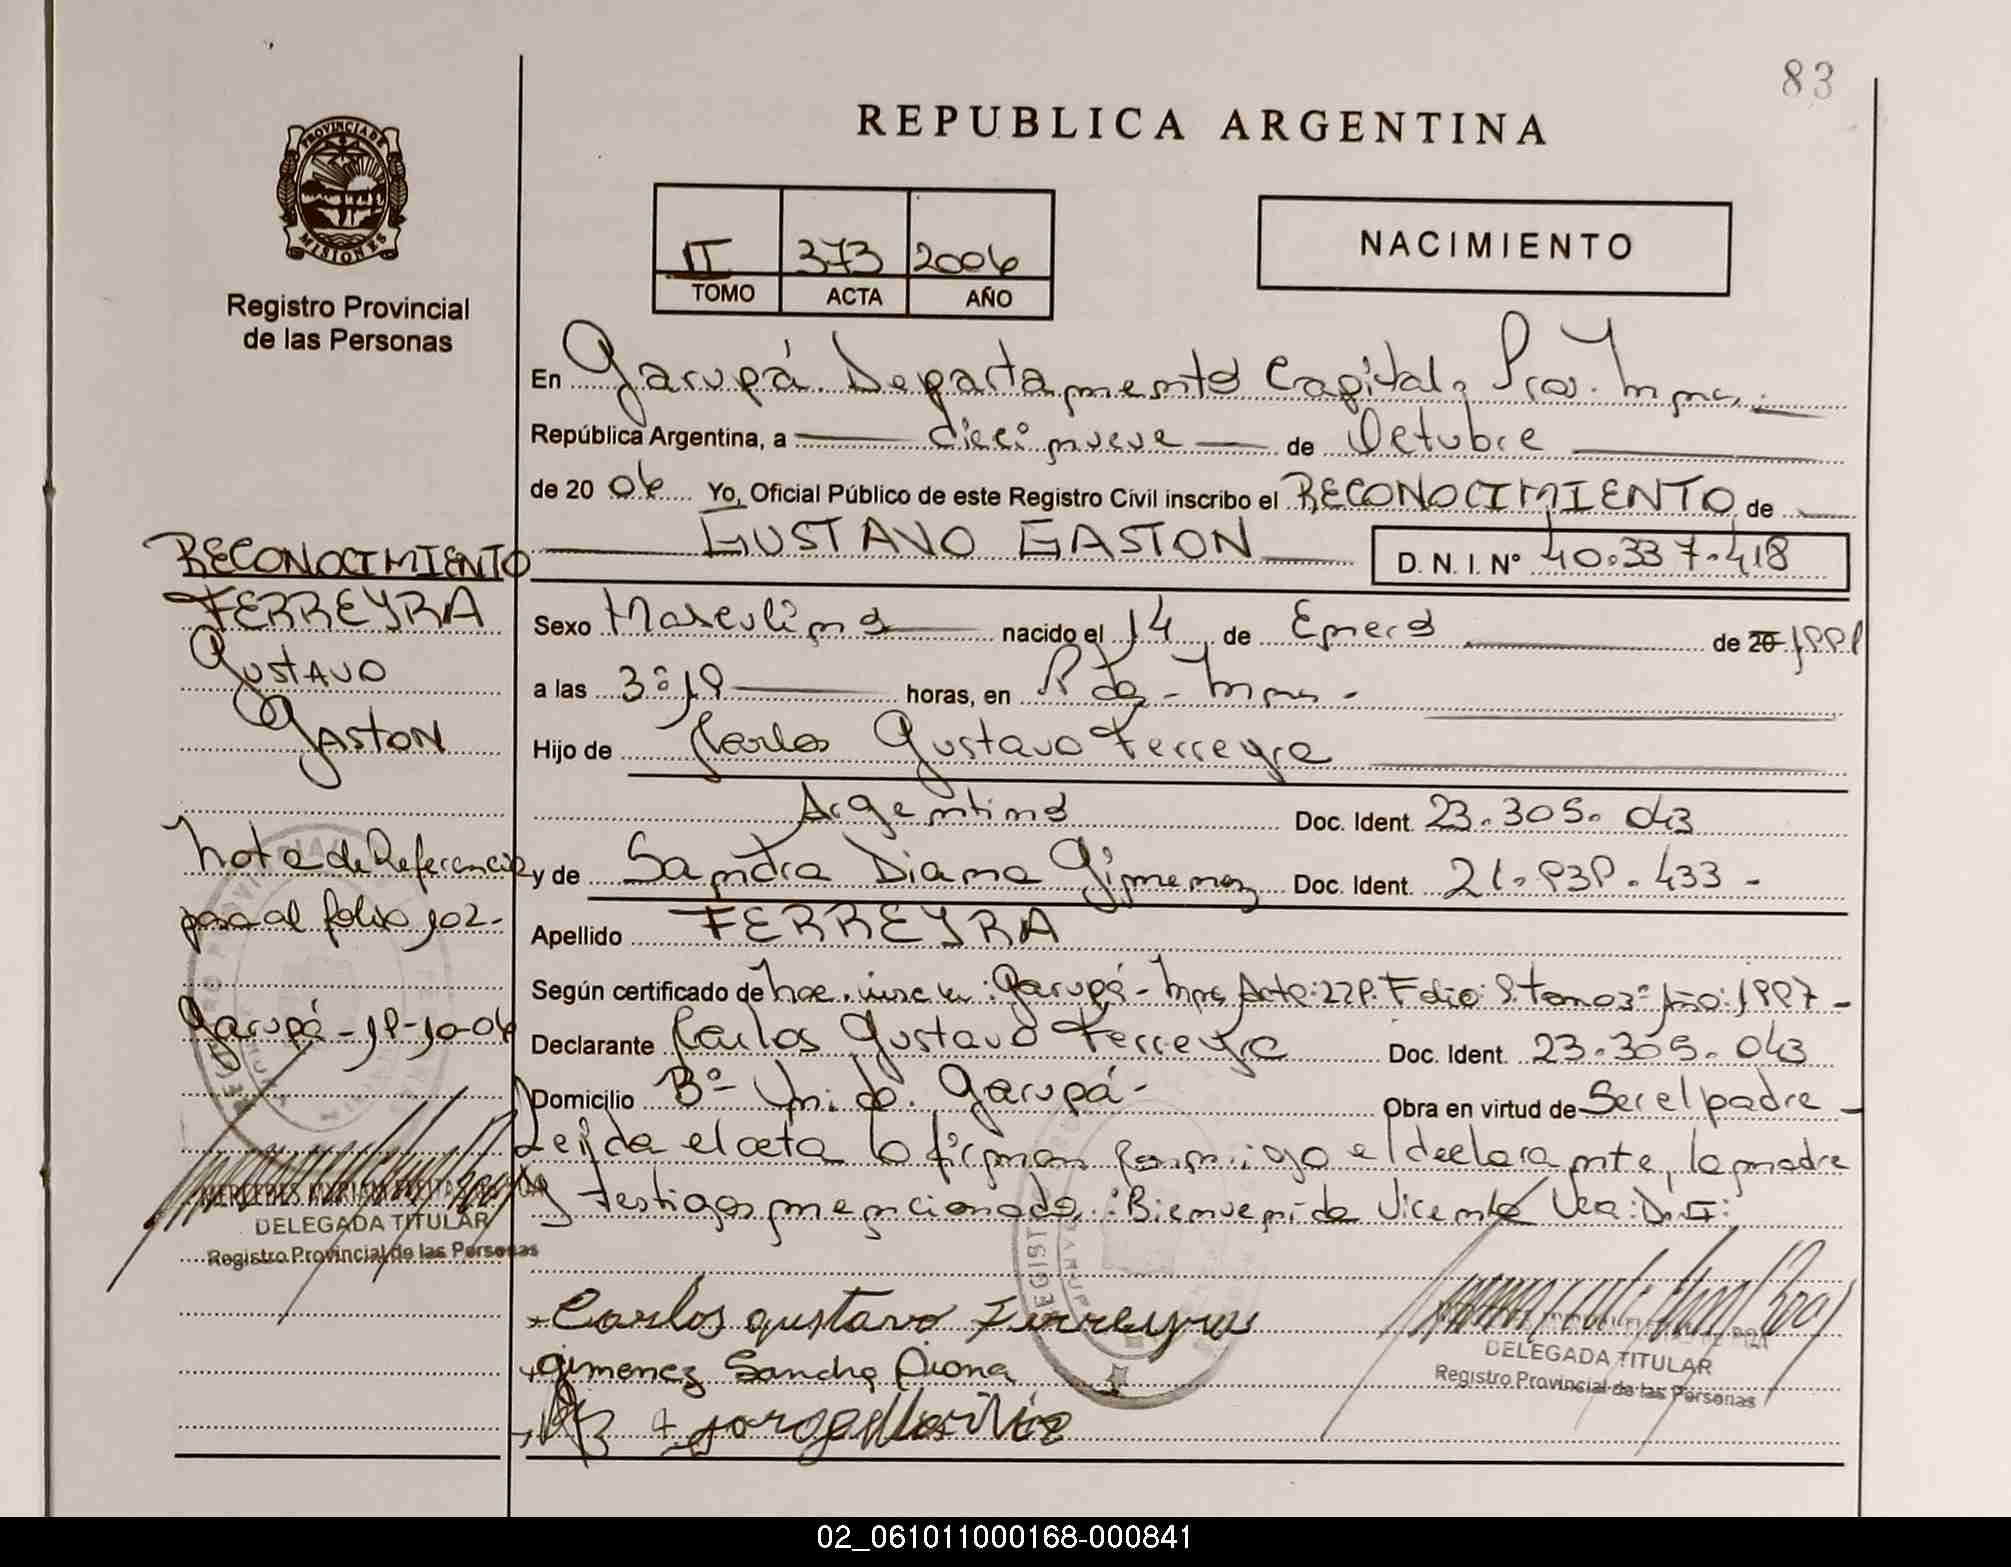 83
PROVINCIA DE
MISIONES
Registro Provincial
de las Personas
REPUBLICA ARGENTINA
II 373 2006
TOMO ACTA AÑO
NACIMIENTO
En Garupá Departamento Capital, Prov. Mnes.
República Argentina, a diecinueve de Octubre
de 20 06 Yo, Oficial Público de este Registro Civil inscribo el RECONOCIMIENTO de
GUSTAVO GASTON D. N. I. Nº 40.337.418
Sexo Masculino nacido el 14 de Enero de 20
a las 3:19 horas, en Pdas - Mnes -
Hijo de Carlos Gustavo Ferreyra
Argentino Doc. Ident. 23.305.043
y de Sandra Diana Gimenez Doc. Ident. 21.939.433 -
Apellido FERREYRA
Según certificado de Garupá - Mnes Acta: 229. Folio: 9. tomo 3º Año: 1997 -
Declarante Carlos Gustavo Ferreyra Doc. Ident. 23.305.043
Domicilio Bº - Unido. Garupá - Obra en virtud de Ser el padre -
Leída el acta la firman conmigo el declarante, la madre
y testigos mencionados: Bienvenido Vicente
Carlos gustavo Ferreyra
Gimenez Sandra Diana
DELEGADA TITULAR
Registro Provincial de las Personas
RECONOCIMIENTO
FERREYRA
Gustavo
Gaston
Nota de Referencia
pasa al folio 102-
Garupá - 19-10-06
DELEGADA TITULAR
Registro Provincial de las Personas
02_061011000168-000841